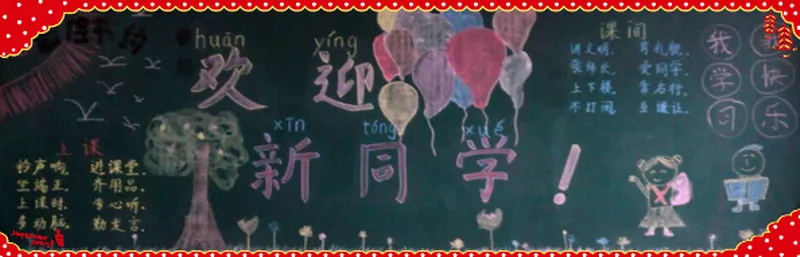 huān yíng
欢迎
xīn tóng xué
新同学!
课间
讲文明, 有礼貌。
爱同学。
上下楼, 靠右行。
不打闹, 互谦让。
我 我
学 快
习 乐
上课
铃声响, 进课堂。
坐端正, 齐用品。
上课时, 专心听。
多动脑, 勤发言。